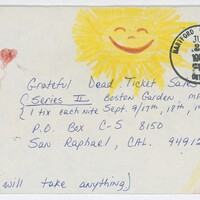 HARTFORD
Grateful Dead Ticket Sales
(Series II Boston Garden, MA
(1 tix each nite Sept. 9/17th, 18th,
P.O. Box C-S 8150
San Raphael, CAL. 94912
will take anything)